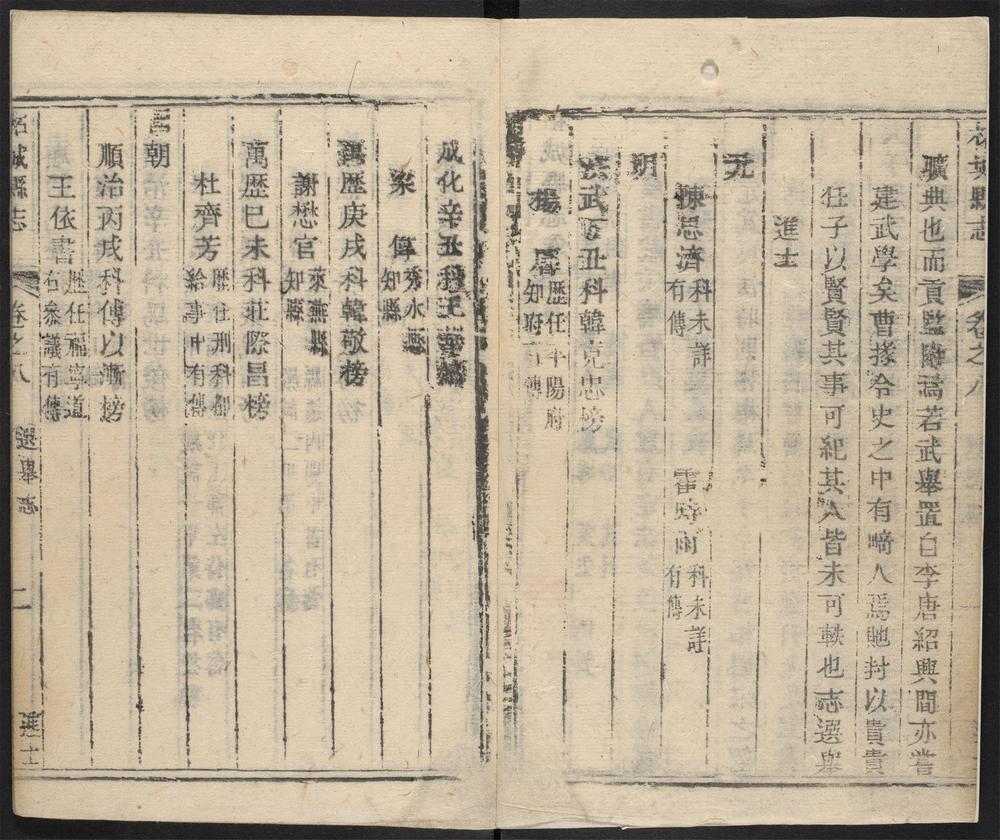 曠典也而貢監附焉若武舉置自李唐紹興間亦嘗
建武學矣曹掾令史之中有畸人焉貤封以貴貴
任子以賢賢其事可紀其人皆未可軼也志選舉
進士
元
陳思濟 科未詳有傳 霍 雨 科未詳有傳
明
洪武丁丑科韓克忠榜
楊 歷任平陽府知府有傳
成化辛丑科王華榜
梁 傳 秀水知縣
萬歷庚戌科韓敬榜
謝懋官 萊蕪縣知縣
萬歷己未科莊際昌榜
杜齊芳 歷任刑科都給事中有傳
國朝
順治丙戌科傅以漸榜
王依書 歷任福寧道右參議有傳
柘城縣志 卷之八 選舉志 二 進士